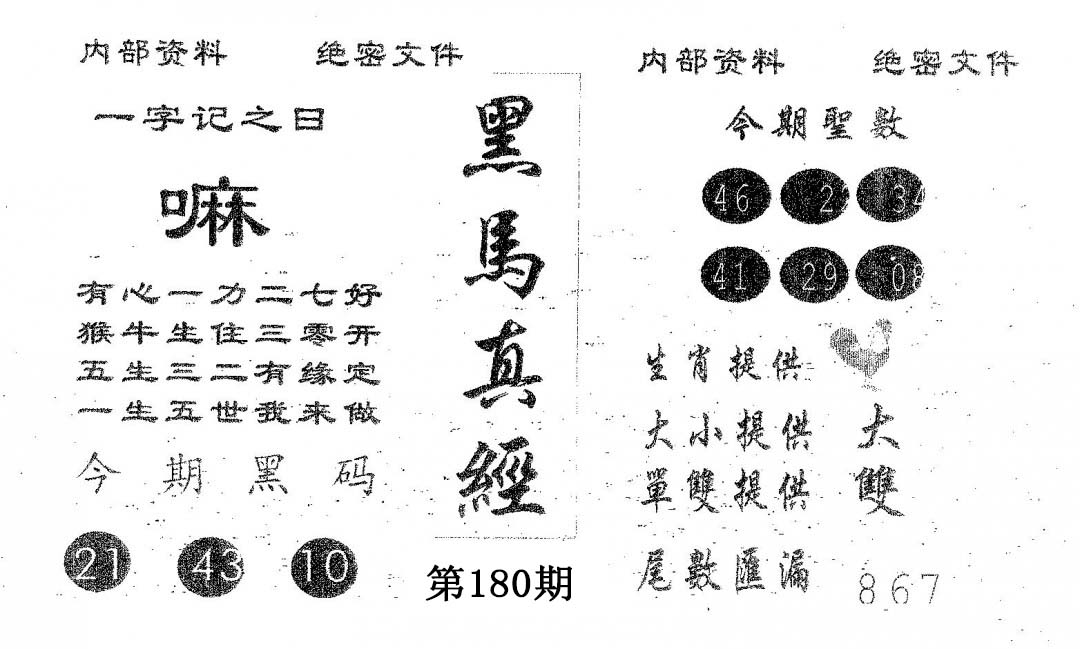 内部资料 绝密文件
一字记之曰
嘛
有心一力二七好
猴牛生住三零开
五生三二有缘定
一生五世我来做
今期黑码
21 43 10
黑馬真經
第180期
内部资料 绝密文件
今期聖數
46 34
41 29 08
生肖提供
大小提供 大
單雙提供 雙
尾數匯漏 867